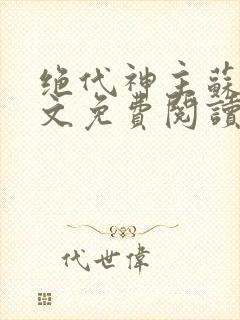 绝代神主蘇
文免費閱讀
代世偉